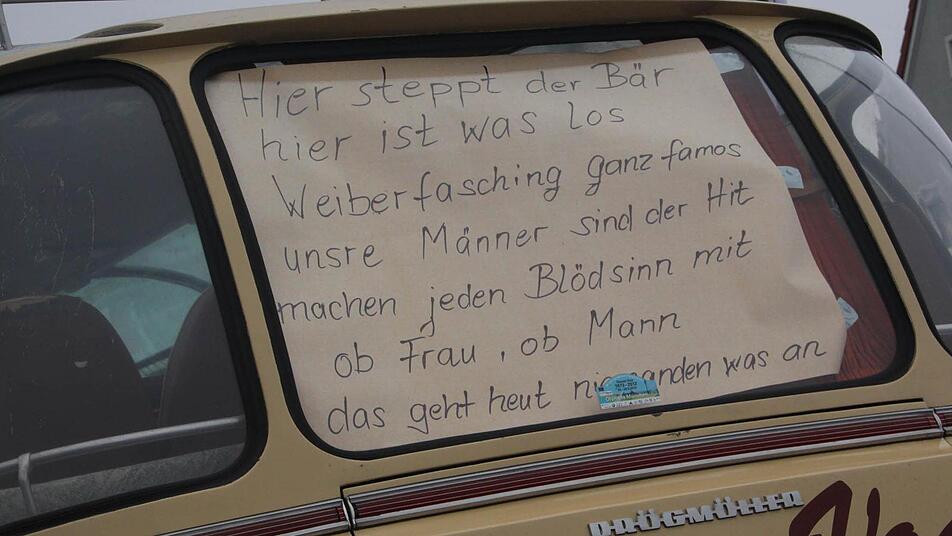 Hier steppt der Bär
hier ist was los
Weiberfasching ganz famos
unsre Männer sind der Hit
machen jeden Blödsinn mit
ob Frau, ob Mann
das geht heut niemanden was an
DRÖGMÖLLER